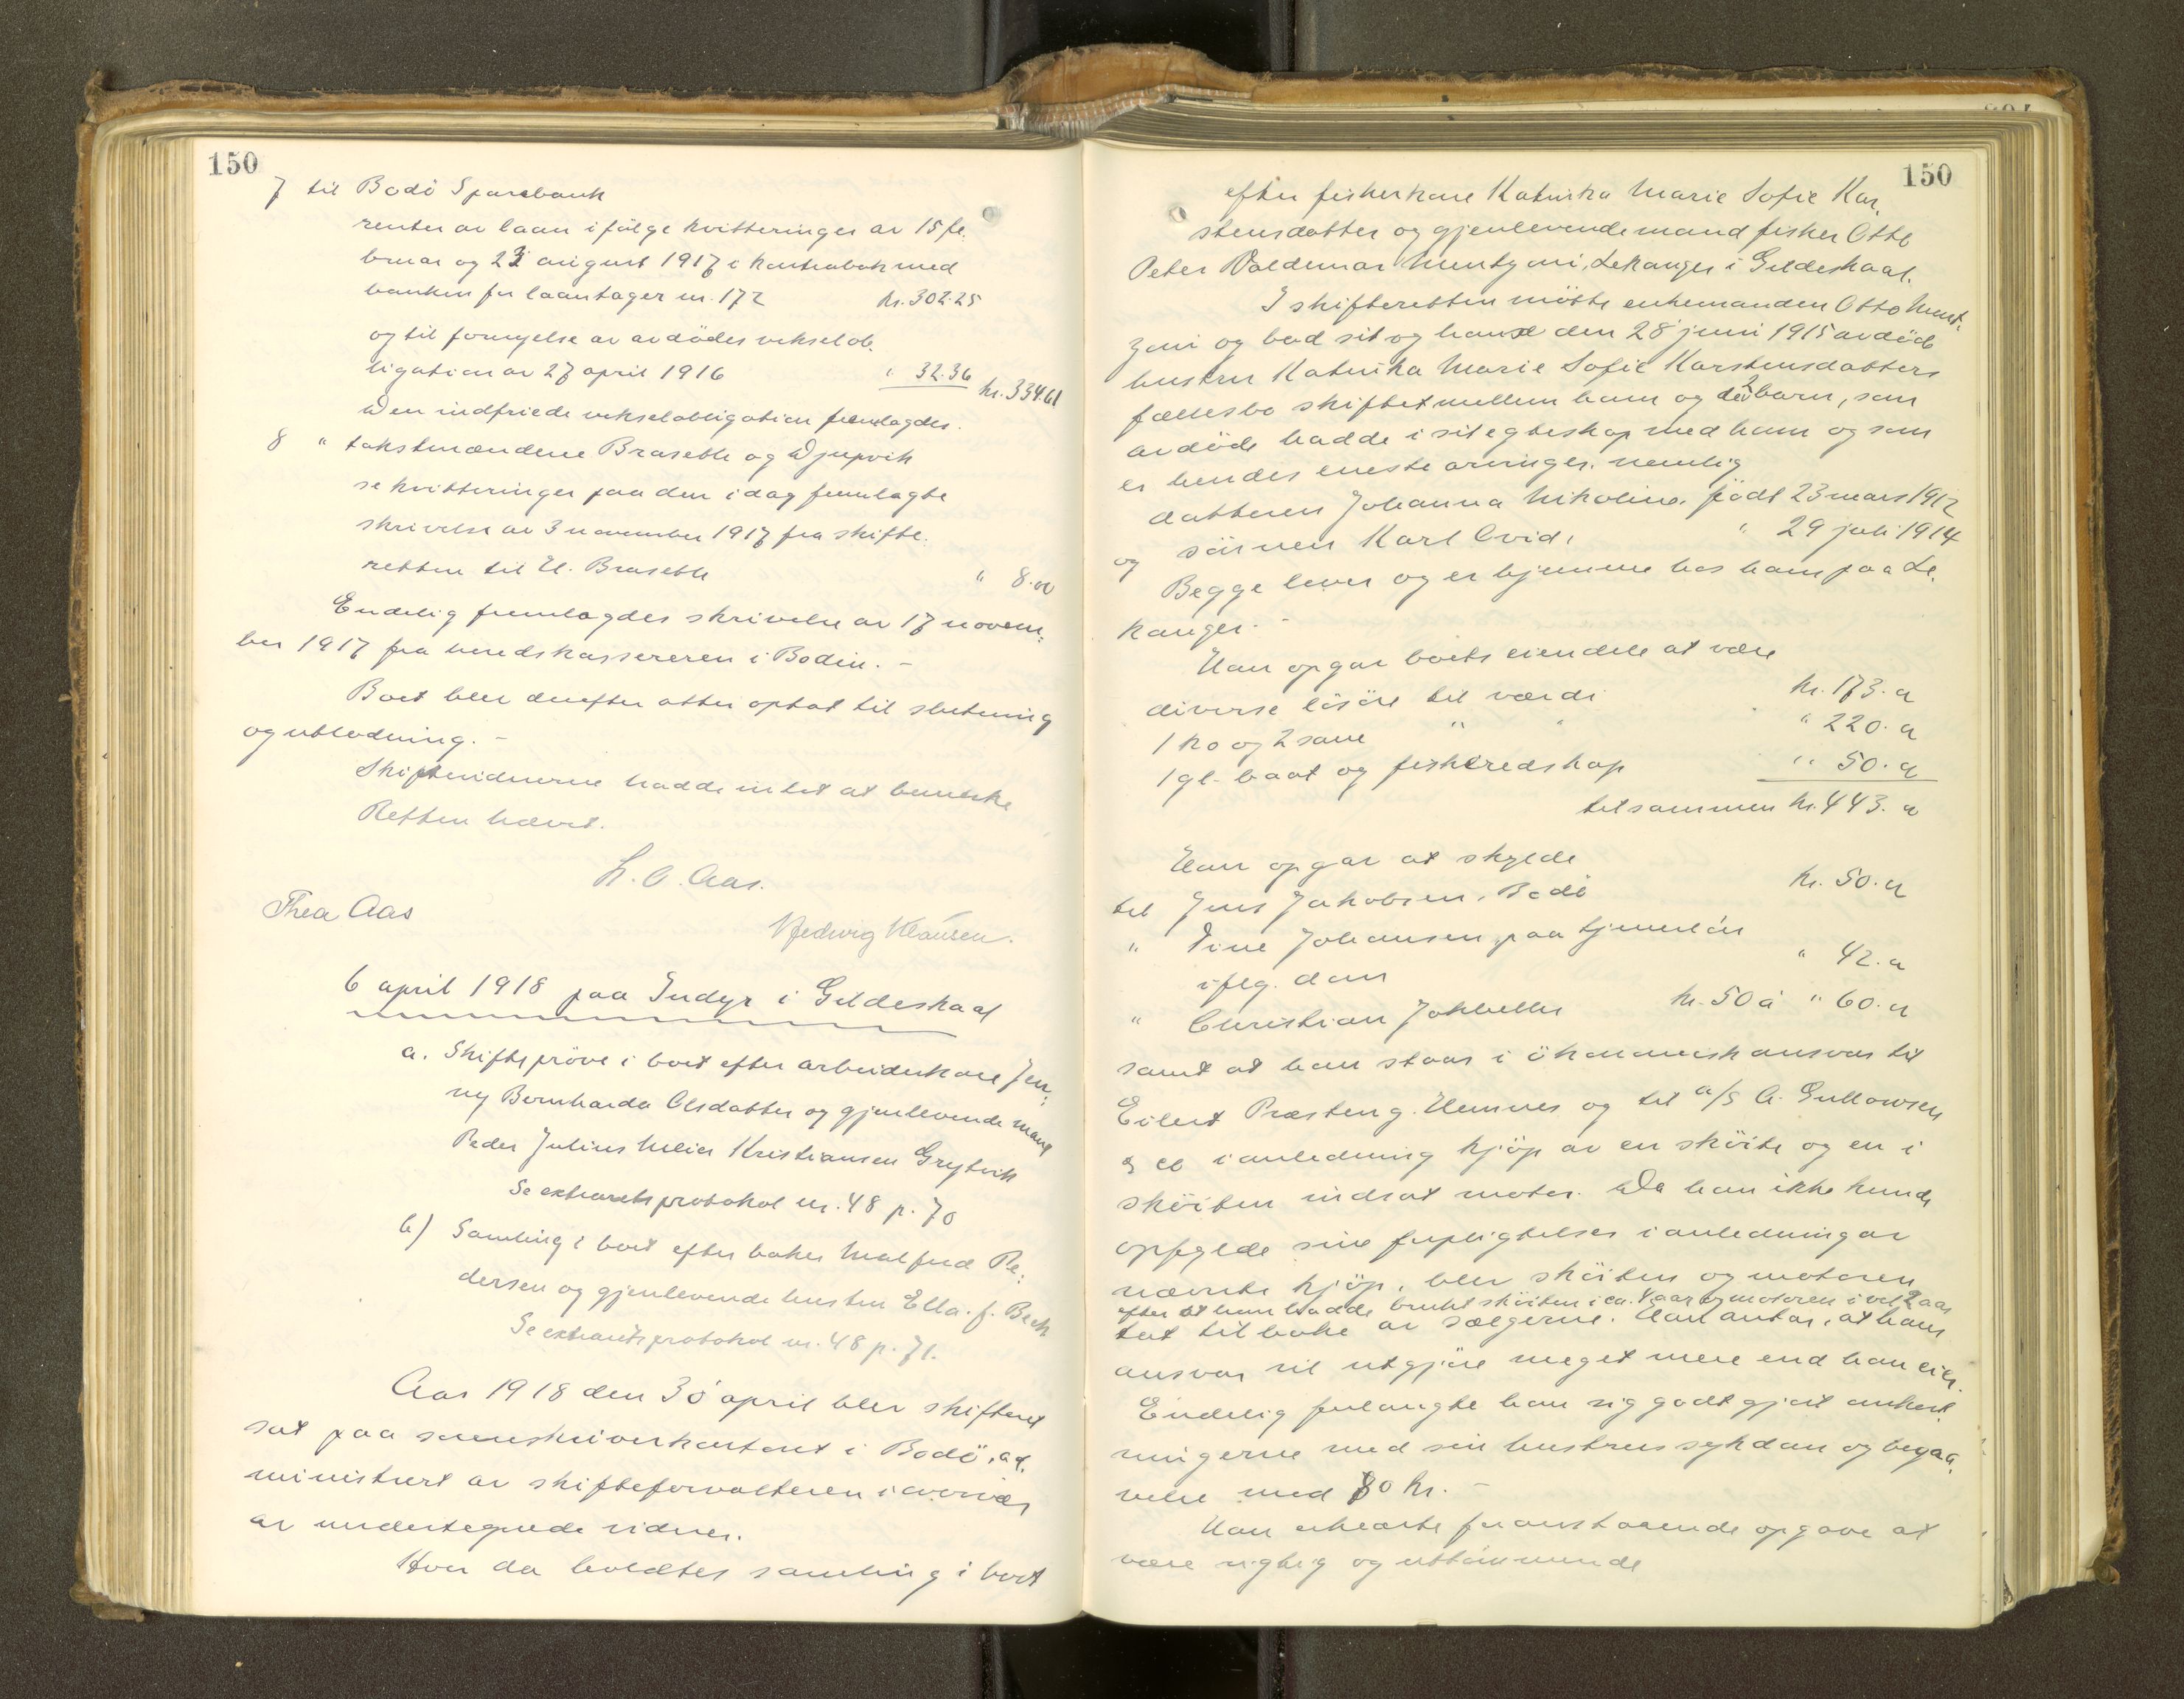 150
7 til Bodö Sparebank
renter av laan ifölge kvitteringer av 15 fe-
bruar og 23 august 1917 i kontrabok med
banken for laantager nr. 172 kr. 302.25
og til fornyelse av avdödes vekselob-
ligation av 27 april 1916 " 32.36 kr. 334.61
Den indfriede vekselobligation fremlagdes.
8 " takstmændene Braseth og Djupvik
se kvitteringer paa den idag fremlagte
skrivelse av 3 november 1917 fra skifte-
retten til H. Braseth " 8.00
Endelig fremlagdes skrivelse av 17 novem-
ber 1917 fra herredskassereren i Bodin. -
Boet blev derefter atter optat til slutning
og utlodning. -
Skiftevidnerne hadde intet at bemerke
Retten hævet.
L. O. Aas.
Thea Aas
Hedvig Klausen.
6 april 1918 paa Indyr i Gildeskaal
a. Skiftepröve i boet efter arbeiderkone Jen-
ny Bernharda Olsdatter og gjenlevende mand
Peder Julius Meier Kristiansen Grytvik
Se extraretsprotokol nr. 48 p. 70
b) Samling i boet efter baker Malfred Pe-
dersen og gjenlevende hustru Ella f. Bech
Se extraretsprotokol nr. 48 p. 71.
Aar 1918 den 30 april blev skifteret
sat paa sorenskriverkontoret i Bodö, ad-
ministrert av skifteforvalteren i overvær
av undertegnede vidner.
Hvor da holdtes samling i boet
150
efter fiskerkone Katinka Marie Sofie Kar-
stensdatter og gjenlevende mand fisker Otto
Peter Valdemar Mentzoni, Lekanger i Gildeskaal.
I skifteretten mötte enkemanden Otto Ment-
zoni og bad sit og hans den 28 juni 1915 avdöde
hustru Katinka Marie Sofie Karstensdatters
fællesbo skiftet mellem ham og de 2 barn, som
avdöde hadde i sit egteskap med ham og som
er hendes eneste arvinger, nemlig
datteren Johanna Nikoline, födt 23 mars 1912
og sönnen Karl Ovid, " 29 juli 1914
Begge lever og er hjemme hos ham paa Le-
kanger. -
Han opgav boets eiendele at være
diverse lösöre til værdi kr. 173.00
1 ko og 2 sauer " " " 220.00
1 gl. baat og fiskeredskap " 50.00
tilsammen kr. 443.00
Han opgav at skylde
til Jens Jakobsen, Bodö kr. 50.00
" Tine Johansen, paa tjenerlön
iflg. dom " 42.00
" Christian Jakhelln kr. 50 à " 60.00
samt at han staar i ökonomisk ansvar til
Eilert Præsteng. Hemnes og til a/s A. Gullowsen
& co i anledning kjöp av en sköite og en i
sköiten indsat motor. Da han ikke kunde
opfylde sine forpligtelser i anledning av
nævnte kjöp, blev sköiten og motoren
efter at han hadde brukt sköiten i ca. 4 aar og motoren i vel 2 aar
tat tilbake av sælgerne. Han antar, at hans
ansvar vil utgjöre meget mere end han eier.
Endelig forlangte han sig godtgjort omkost-
ningerne med sin hustrus sykdom og begra-
velse med 80 kr. -
Han erklærte foranstaaende opgave at
være rigtig og uttömmende